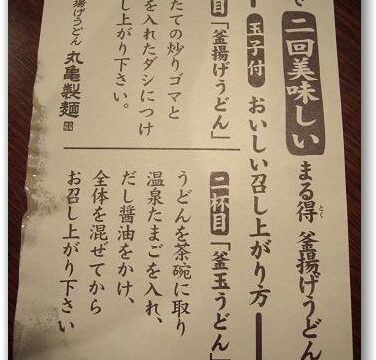 で 二回美味しい まる得 釜揚げうどん
玉子付 おいしい召し上がり方
目「釜揚げうどん」
たての炒りゴマと
を入れたダシにつけ
し上がり下さい。
二杯目「釜玉うどん」
うどんを茶碗に取り
温泉たまごを入れ、
だし醤油をかけ、
全体を混ぜてから
お召し上がり下さい
揚げうどん 丸亀製麺